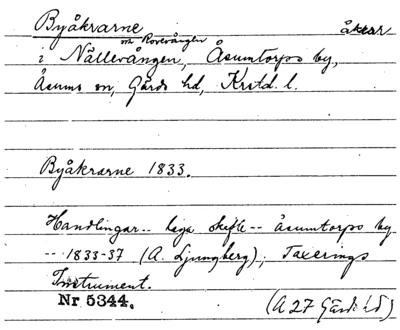 Byåkrarne åkrar
och Rovevången
i Nällevången, Åsumtorps by,
Åsums sn, Gärds hd, Krstd. l.
Byåkrarne 1833.
Handlingar -- laga skifte -- Åsumtorps by
-- 1833-37 (A. Ljungberg); Taxerings
Instrument.
Nr 5344. (A 27 Gärds hd)